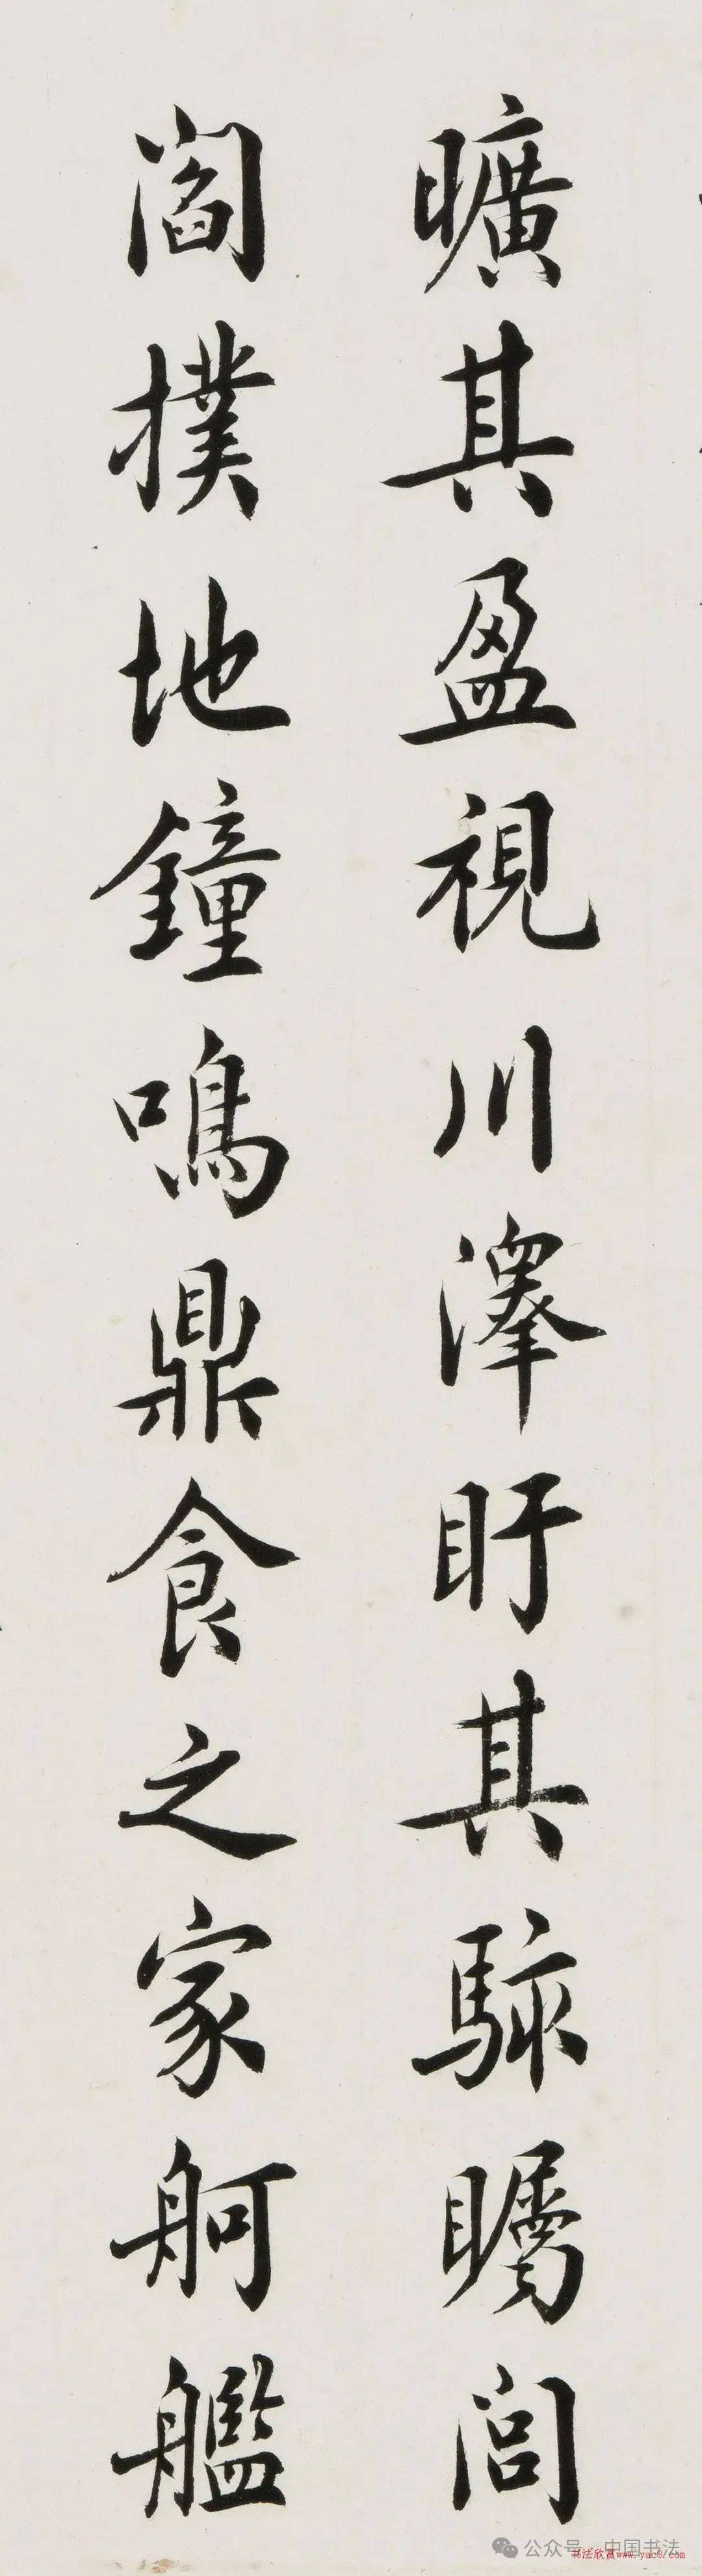 曠其盈視川澤盱其駭矚閭
閻撲地鐘鳴鼎食之家舸艦
公众号·中国书法
书法欣赏www.yac8.com